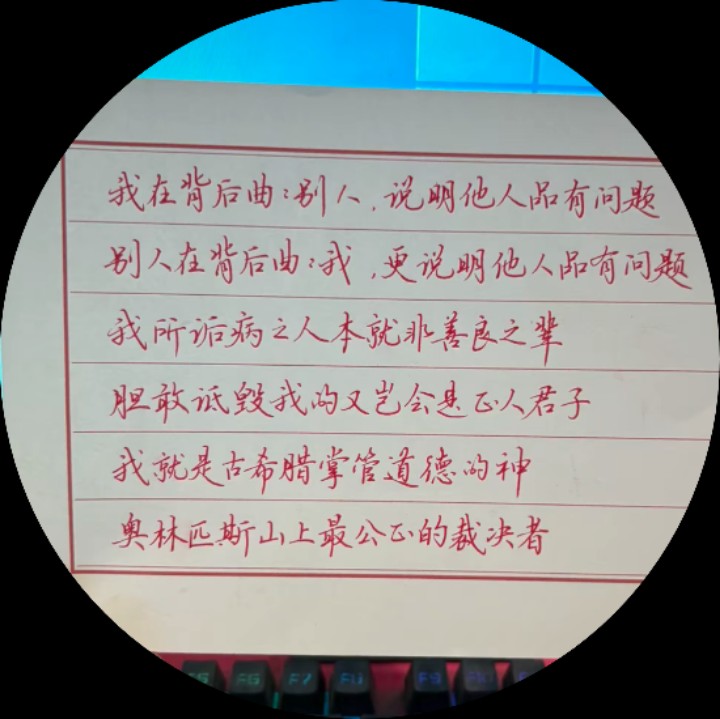 我在背后曲:别人,说明他人品有问题
别人在背后曲:我,更说明他人品有问题
我所诟病之人本就非善良之辈
胆敢诋毁我的又岂会是正人君子
我就是古希腊掌管道德的神
奥林匹斯山上最公正的裁决者
F6 F7 F8 F9 F10